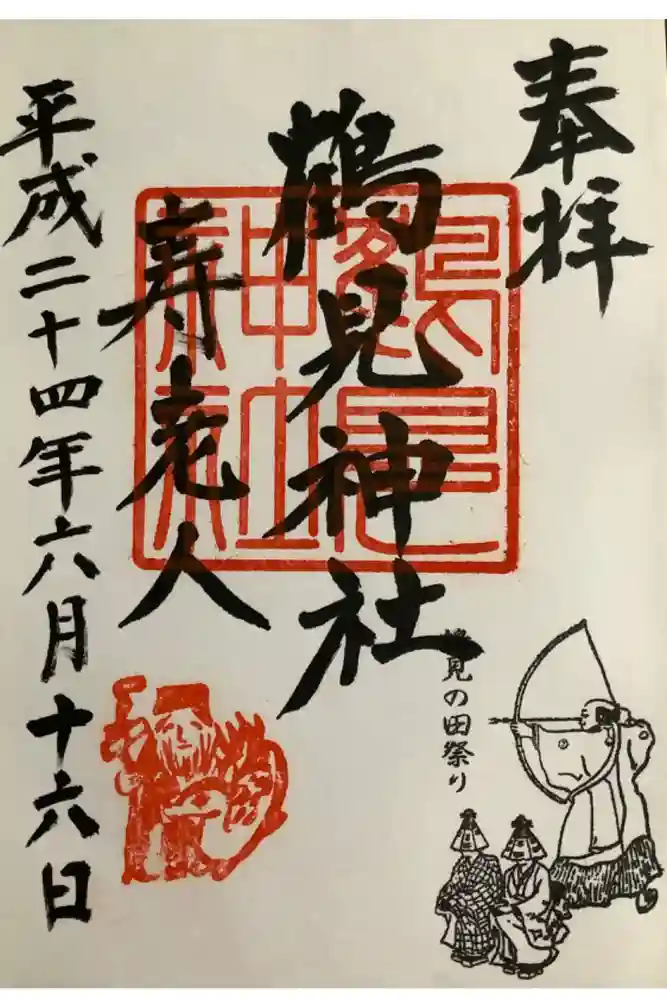 奉拝
鶴見神社
寿老人
平成二十四年六月十六日
鶴見の田祭り
鶴見神社